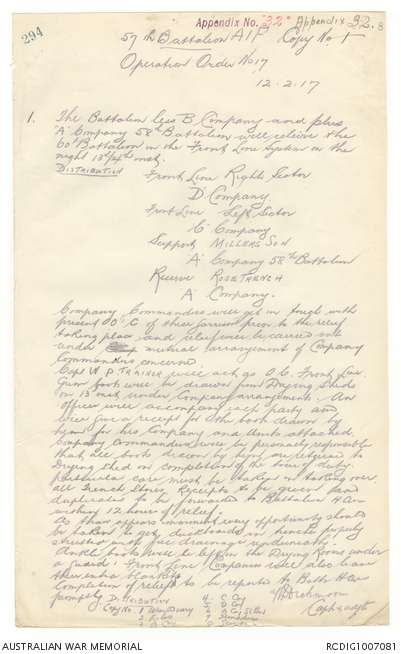 294
Appendix No. 32 Appendix 32.
57th Battalion AIF Copy No 1
Operation Order No 17
12.2.17
1. The Battalion less B Company and plus
'A' Company 58th Battalion will relieve the
60 Battalion in the Front Line System on the
night 13/14th inst.
DISTRIBUTION
Front Line Right Sector
D Company
Front Line Left Sector
C Company
Support MILLERS SON
A Company 58th Battalion
Reserve ROSE TRENCH
A Company.
Company Commanders will get in touch with
present O's C of their prior to the relief
taking place and relief will be carried out
under mutual arrangement of Company
Commanders concerned.
Capt W P TRAINER will act as O.C. Front Line.
Gum boots will be drawn from Drying Sheds
on 13 inst under Company arrangements. An
officer will accompany each party and
will give a receipt for the books drawn by
him for his Company and details attached.
Company Commanders will be personally responsible
that all boots drawn by him are returned to
Drying Shed on completion of the tour of duty.
Particular care must be taken in taking over
all Trench Stores Receipts to be given and
duplicates to be forwarded to Battalion HQrs
within 12 hours of relief.
As thaw appears imminent every opportunity should
be taken to get duckboards in trench properly
and drainage
Ankle boots will be left in the Drying Rooms under
a guard. Front Line Companies will also leave
their blankets
Completion of relief to be reported to Battn HQrs
promptly
DISTRIBUTION
Copy No. 1 War Diary
4 C Coy
5 D Coy
Capt & Adjt
AUSTRALIAN WAR MEMORIAL
RCDIG1007081